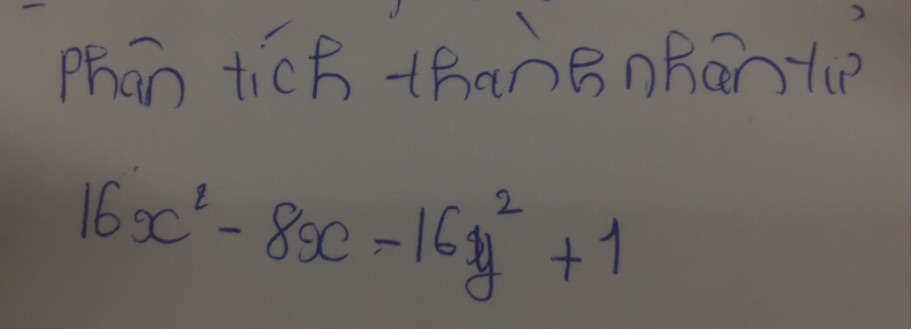 Phân tích thành nhân tử
16x² - 8x - 16y² + 1